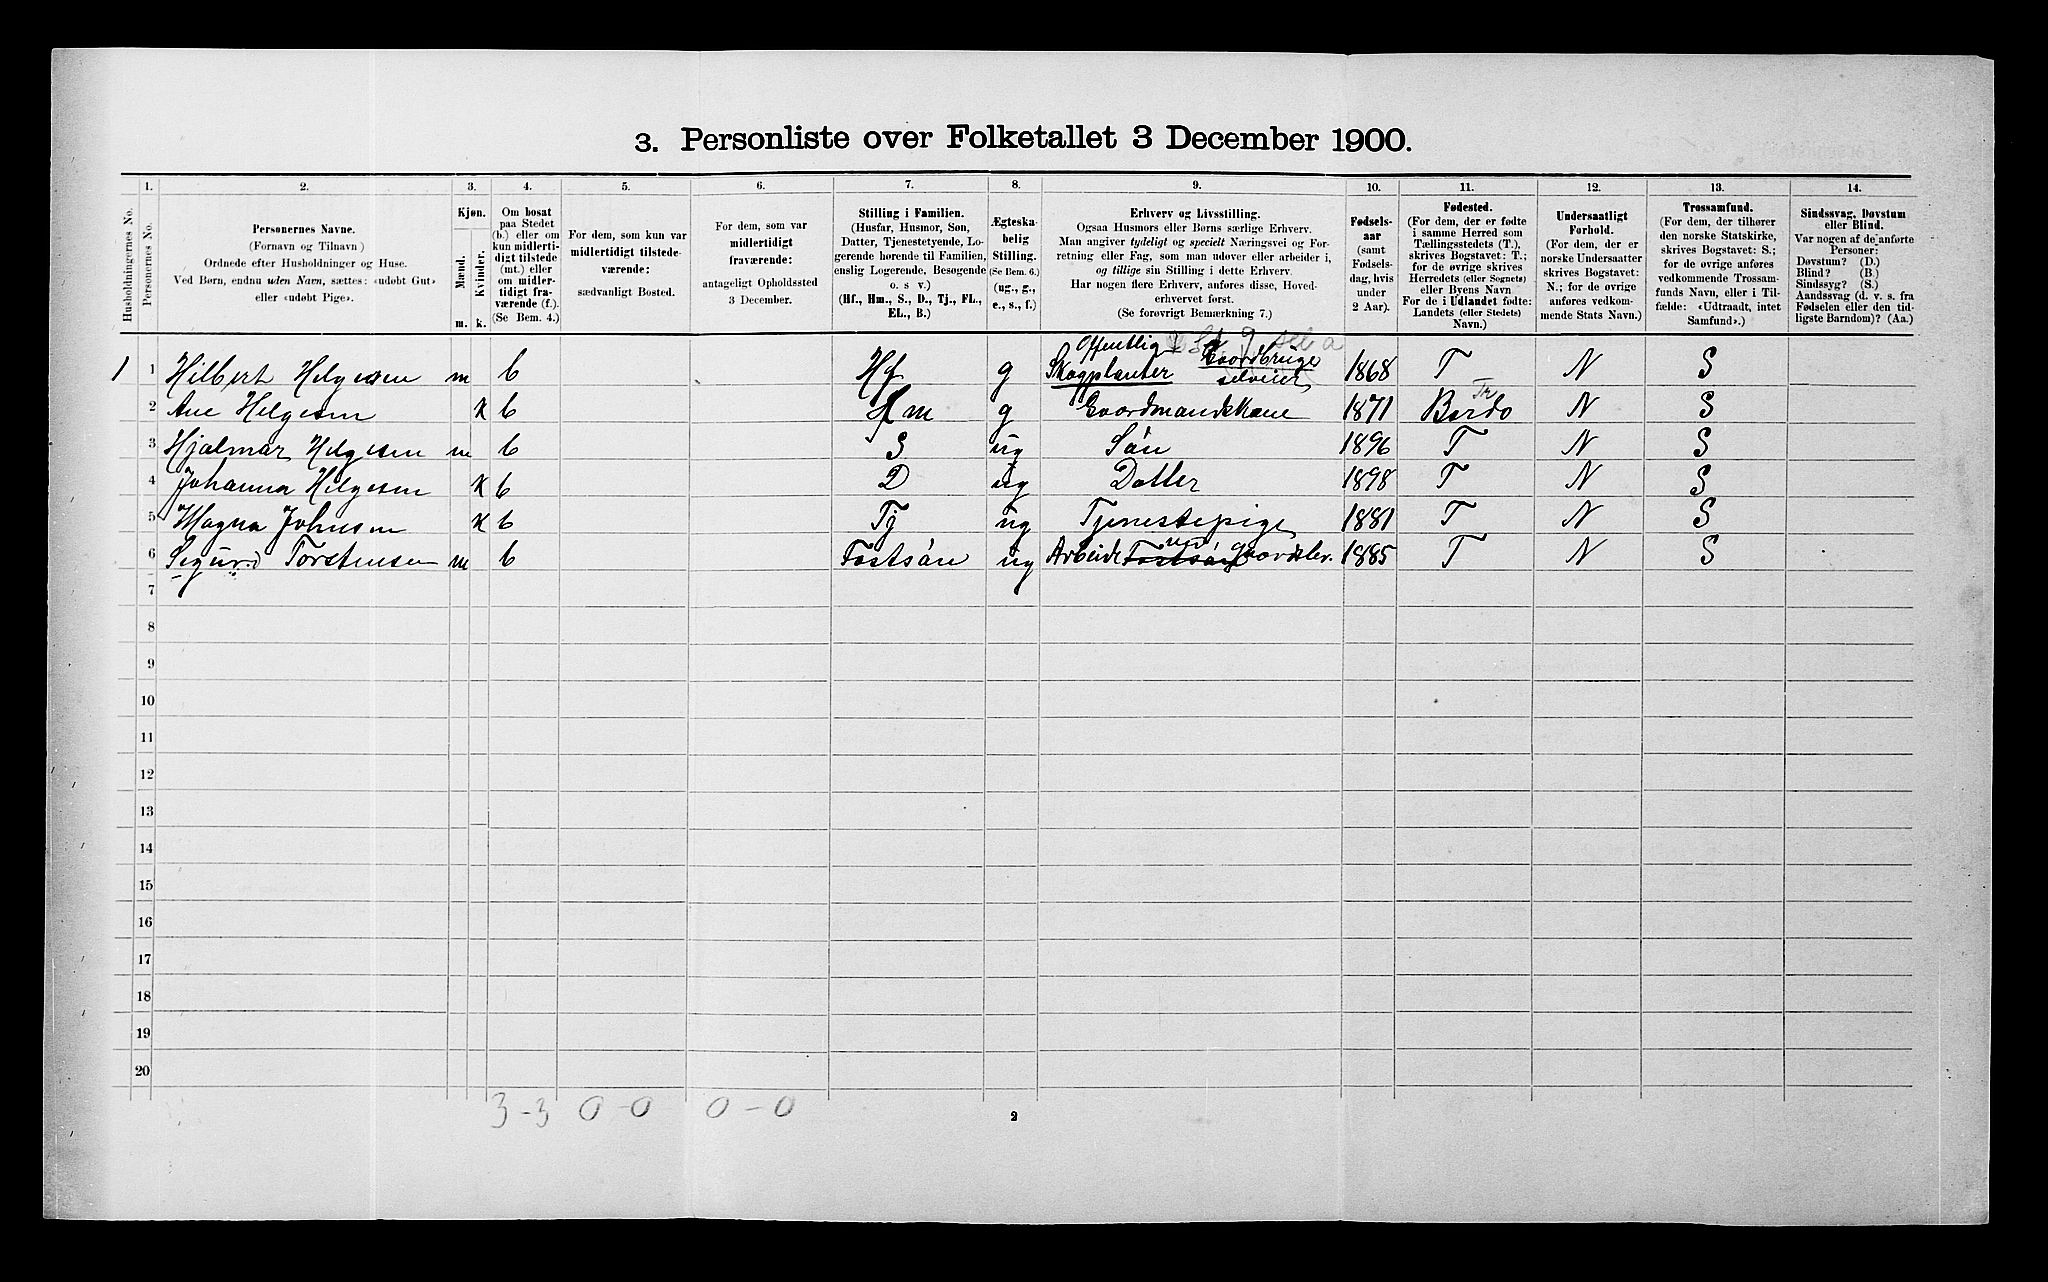 3. Personliste over Folketallet 3 December 1900.
1. 2. 3. 4. 5. 6. 7. 8. 9. 10. 11. 12. 13. 14.
Husholdningernes No.
Personernes No.
Personernes Navne.
(Fornavn og Tilnavn)
Ordnede efter Husholdninger og Huse.
Ved Børn, endnu uden Navn, sættes: «udøbt Gut»
eller «udøbt Pige».
Kjøn.
Mænd.
Kvinder.
m. k.
Om bosat
paa Stedet
(b.) eller om
kun midlerti-
digt tilstede
(mt.) eller
om midler-
tidigt fra-
værende (f.).
(Se Bem. 4.)
For dem, som kun var
midlertidigt tilstede-
værende:
sædvanligt Bosted.
For dem, som var
midlertidigt
fraværende:
antageligt Opholdssted
3 December.
Stilling i Familien.
(Husfar, Husmor, Søn,
Datter, Tjenestetyende, Lo-
gerende hørende til Familien,
enslig Logerende, Besøgende
o. s v.)
(Hf., Hm., S., D., Tj., FL.,
EL., B.)
Ægteska-
belig
Stilling.
(Se Bem. 6.)
(ug., g.,
e., s., f.)
Erhverv og Livsstilling.
Ogsaa Husmors eller Børns særlige Erhverv.
Man angiver tydeligt og specielt Næringsvei og For-
retning eller Fag, som man udøver eller arbeider i,
og tillige sin Stilling i dette Erhverv.
Har nogen flere Erhverv, anføres disse, Hoved-
erhvervet først.
(Se forøvrigt Bemærkning 7.)
Fødsels-
aar
(samt
Fødsels-
dag, hvis
under
2 Aar).
Fødested.
(For dem, der er fødte
i samme Herred som
Tællingsstedets (T.),
skrives Bogstavet: T.;
for de øvrige skrives
Herredets (eller Sognets)
eller Byens Navn
For de i Udlandet fødte:
Landets (eller Stedets)
Navn.)
Undersaatligt
Forhold.
(For dem, der er
norske Undersaatter
skrives Bogstavet:
N.; for de øvrige
anføres vedkom-
mende Stats Navn.)
Trossamfund.
(For dem, der tilhører
den norske Statskirke,
skrives Bogstavet: S.;
for de øvrige anføres
vedkommende Trossam-
funds Navn, eller i Til-
fælde: «Udtraadt, intet
Samfund».)
Sindssvag, Døvstum
eller Blind.
Var nogen af de anførte
Personer:
Døvstum? (D.)
Blind? (B.)
Sindssyg? (S.)
Aandssvag (d. v. s. fra
Fødselen eller den tid-
ligste Barndom)? (Aa.)
1 1 Hilbert Helgesen m b Hf g Offentlig Skogplanter Gaardbruger selveier 1868 T N S
2 Ane Helgesen k b Hm g Gaardmandskone 1871 Bardo Tr N S
3 Hjalmar Helgesen m b S ug Søn 1896 T N S
4 Johanna Helgesen k b D ug Datter 1898 T N S
5 Magna Johnsen k b Tj ug Tjenestepige 1881 T N S
6 Sigurd Torstensen m b Fostsøn ug Arbeide Fostsøn ved gaardsbr. 1885 T N S
7
8
9
10
11
12
13
14
15
16
17
18
19
20
3-3 0-0 0-0
2